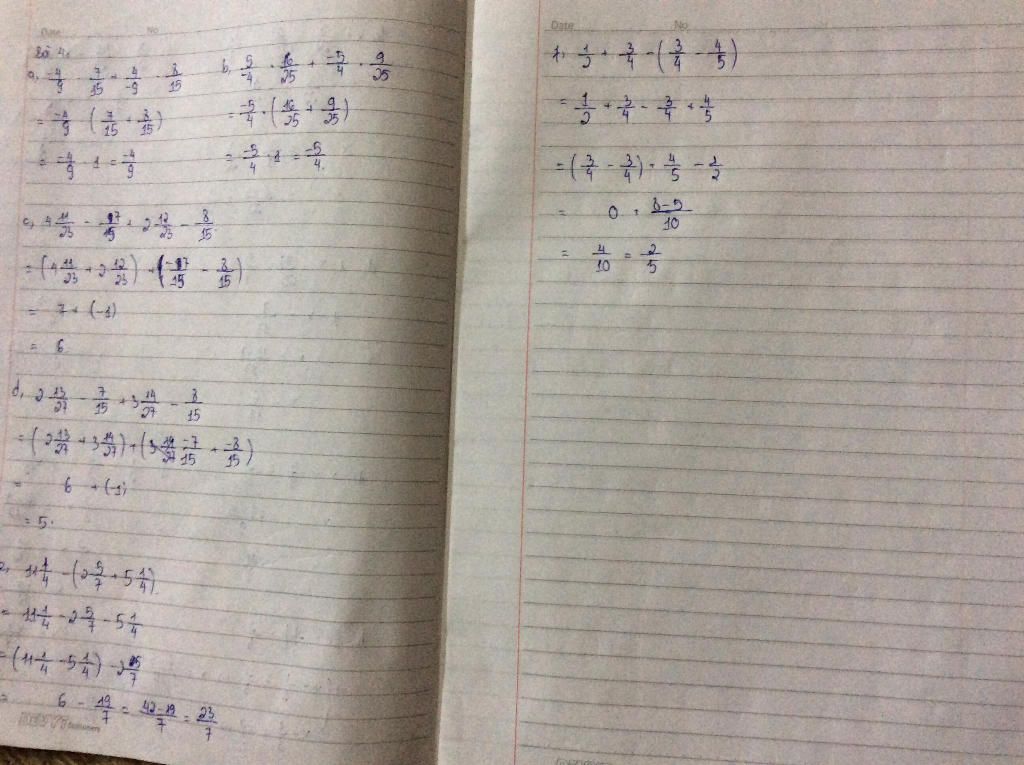 Date No
Bài 4.
a, -4/9 · 7/15 + 4/-9 · 8/15
= -4/9 (7/15 + 8/15)
= -4/9 · 1 = -4/9
b, 5/-4 · 16/25 + -5/4 · 9/25
= -5/4 · (16/25 + 9/25)
= -5/4 · 1 = -5/4.
c, 4 11/23 - 7/15 + 2 12/23 - 8/15.
= (4 11/23 + 2 12/23) + (-7/15 - 8/15)
= 7 + (-1)
= 6.
d, 2 13/27 - 7/15 + 3 14/27 - 8/15
= (2 13/27 + 3 14/27) + (-7/15 + -8/15)
= 6 + (-1)
= 5.
e, 11 1/4 - (2 5/7 + 5 1/4)
= 11 1/4 - 2 5/7 - 5 1/4
= (11 1/4 - 5 1/4) - 2 5/7
= 6 - 19/7 = 42-19/7 = 23/7
Date No
f, 1/2 + 3/4 - (3/4 - 4/5)
= 1/2 + 3/4 - 3/4 + 4/5
= (3/4 - 3/4) + 4/5 - 1/2
= 0 + 8-5/10
= 4/10 = 2/5